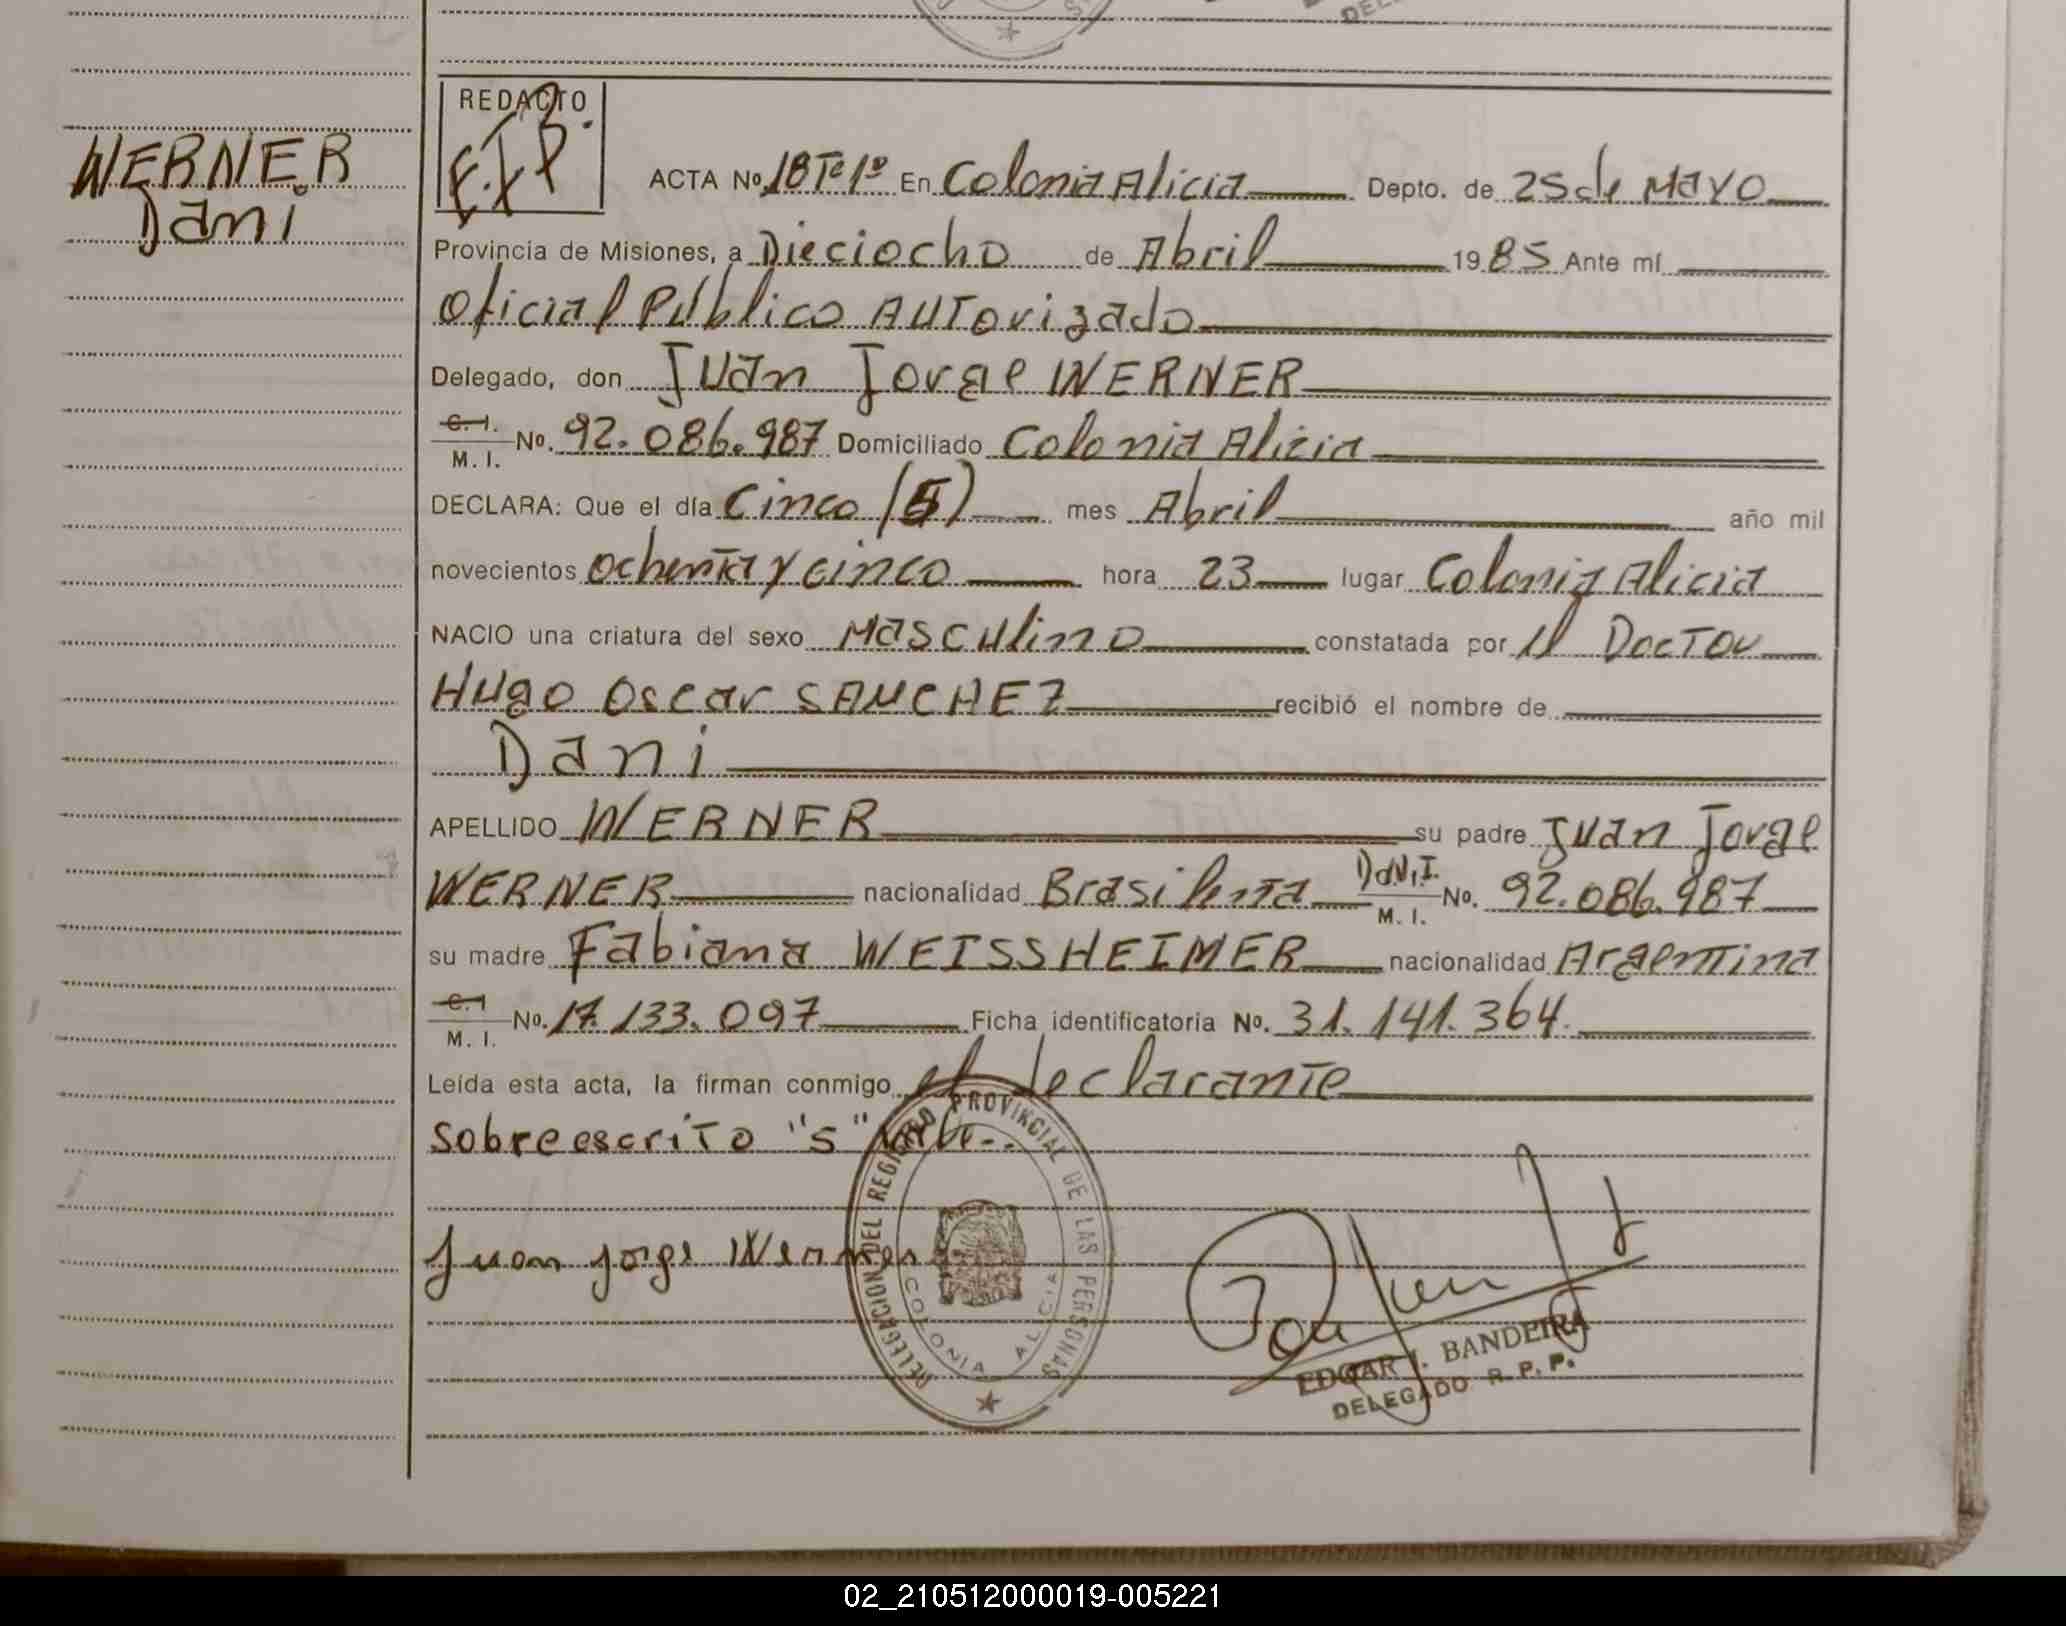 WERNER
Dani
REDACTO
E.I.B.
ACTA Nº 18 Tº 1º En Colonia Alicia Depto. de 25 de Mayo
Provincia de Misiones, a Dieciocho de Abril 1985 Ante mí
Oficial Público Autorizado
Delegado, don Juan Jorge WERNER
C. I.
M. I. Nº. 92.086.987 Domiciliado Colonia Alicia
DECLARA: Que el día Cinco (5) mes Abril año mil
novecientos ochenta y cinco hora 23 lugar Colonia Alicia
NACIO una criatura del sexo Masculino constatada por el Doctor
Hugo Oscar SANCHEZ recibió el nombre de
Dani
APELLIDO WERNER su padre Juan Jorge
WERNER nacionalidad Brasileña D.N.I.
M. I. No. 92.086.987
su madre Fabiana WEISSHEIMER nacionalidad Argentina
C. I
M. I. No. 17.133.097 Ficha identificatoria No. 31.141.364.
Leída esta acta, la firman conmigo el declarante
Sobreescrito "5" vale-..
Juan Jorge Werner
DELEGACION DEL REGISTRO PROVINCIAL DE LAS PERSONAS
COLONIA ALICIA
EDGAR I. BANDEIRA
DELEGADO R. P. P.
02_210512000019-005221